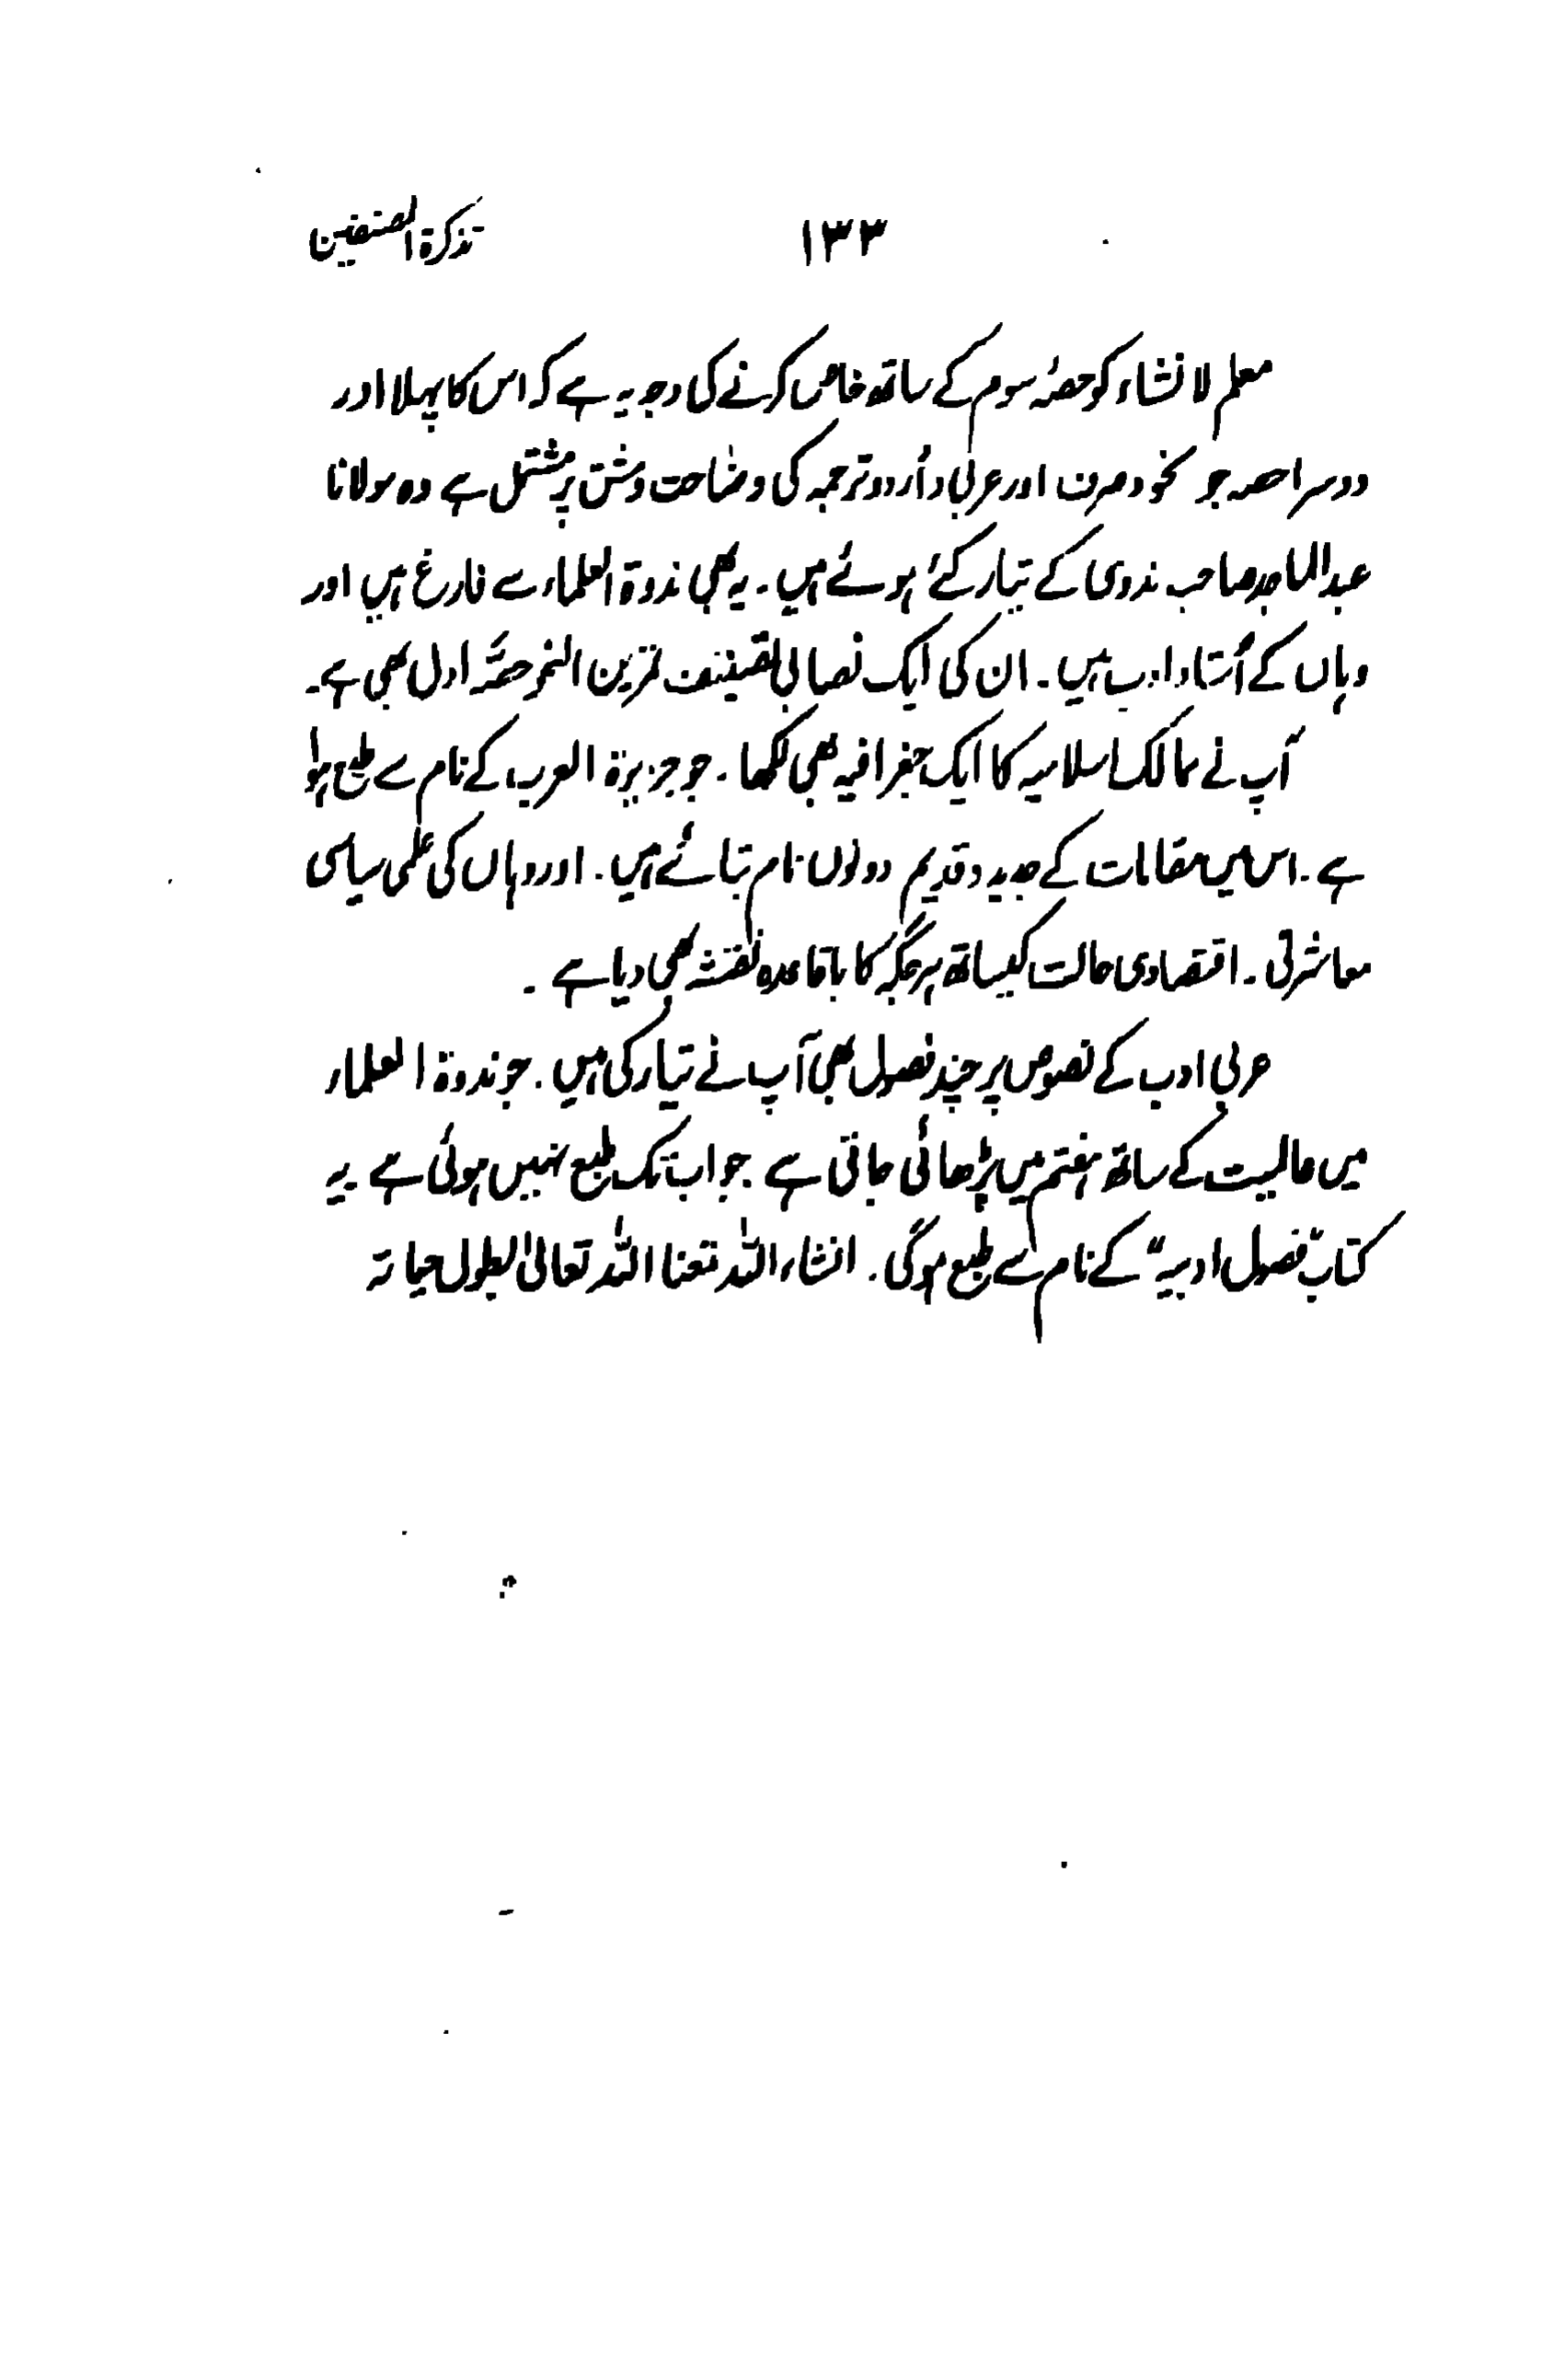 تذکرۃ المصنفین
۱۳۳
معلم لانشاء کو حصۂ سوم کے ساتھ خاص کرنے کی وجہ یہ ہے کہ اس کا پہلا اور
دوسرا حصہ جو نحو و صرف اور عربی و اُردو ترجمہ کی وضاحت و مشق پر مشتمل ہے وہ مولانا
عبدالماجد صاحب ندوی کے تیار کئے ہوئے ہیں۔ یہ بھی ندوۃ العلماء سے فارغ ہیں اور
وہاں کے اُستاد ادب ہیں۔ ان کی ایک نصابی تصنیف تمرین النحو حصۂ اول بھی ہے۔
آپ نے ممالک اسلامیہ کا ایک جغرافیہ بھی لکھا۔ جو جزیرۃ العرب کے نام سے طبع ہوا
ہے۔ اس میں مقامات کے جدید و قدیم دونوں نام بتائے ہیں۔ اور وہاں کی علمی سیاسی
معاشرتی۔ اقتصادی حالت کیساتھ ہر جگہ کا باقاعدہ نقشہ بھی دیا ہے۔
عربی ادب کے نصوص پر چند فصول بھی آپ نے تیار کی ہیں۔ جو ندوۃ العلماء
میں عالمیت کے ساتھ ہفتم میں پڑھائی جاتی ہے جو اب تک طبع نہیں ہوئی ہے۔ یہ
کتاب "فصول ادبیہ" کے نام سے طبع ہوگی۔ انشاء اللہ متعنا اللہ تعالیٰ بطول حیاتہ